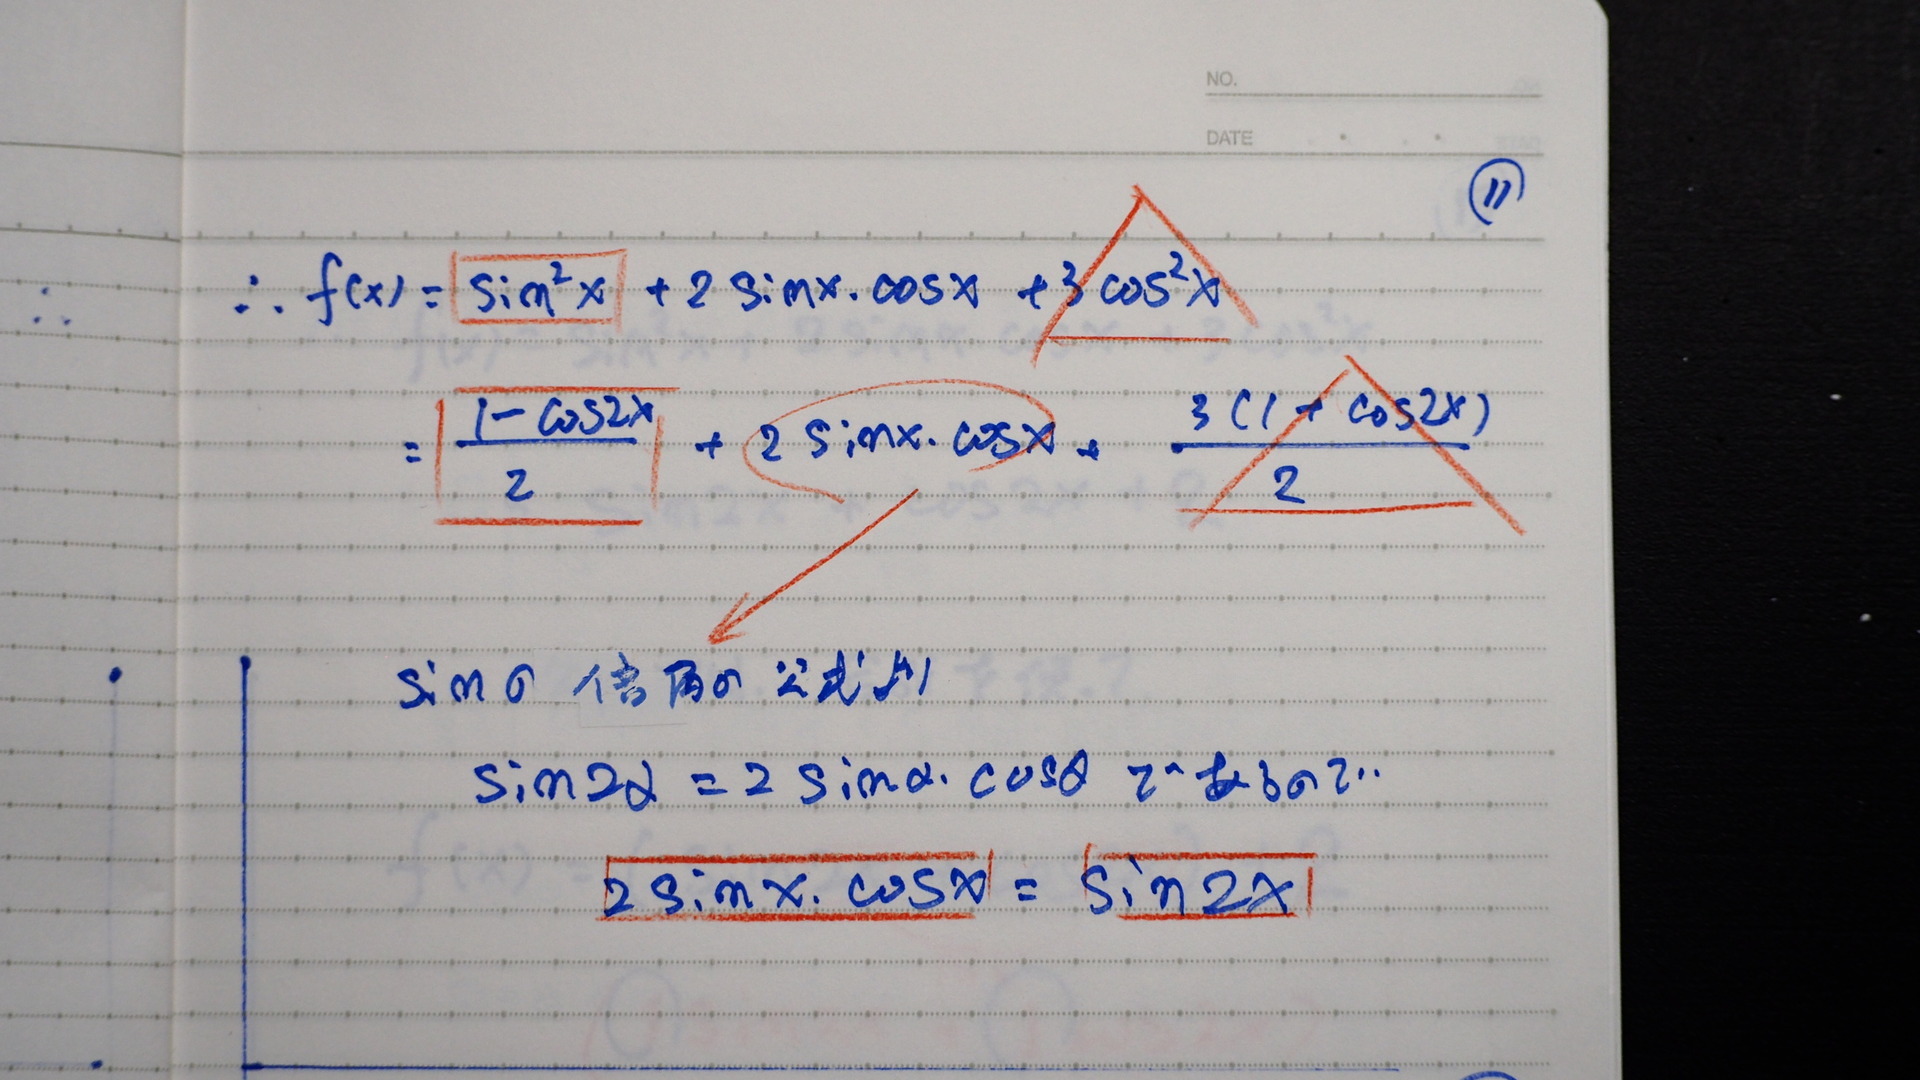 NO.
DATE
⑪
∴ f(x) = sin²x + 2 sinx・cosx + 3 cos²x
= (1 - cos2x)/2 + 2 sinx・cosx + 3(1 + cos2x)/2
sinの 倍角の 公式より
sin2α = 2 sinα・cosθ であるので‥
2 sin x・cosx = sin2x